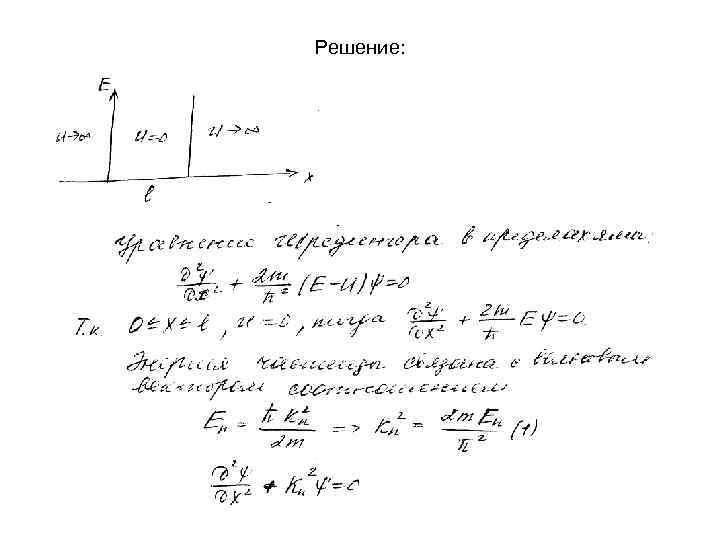 Решение:
E
U→∞ U=0 U→∞
x
l
Уравнение Шредингера в пределах ямы:
∂²Ψ/∂x² + 2m/ħ² (E-U)Ψ=0
Т.к 0≤x≤l, U=0, тогда ∂²Ψ/∂x² + 2m/ħ EΨ=0
Энергия частицы связана с волновым
вектором соотношением
Eₙ = ħKₙ²/2m => Kₙ² = 2mEₙ/ħ² (1)
∂²Ψ/∂x² + Kₙ²Ψ=0